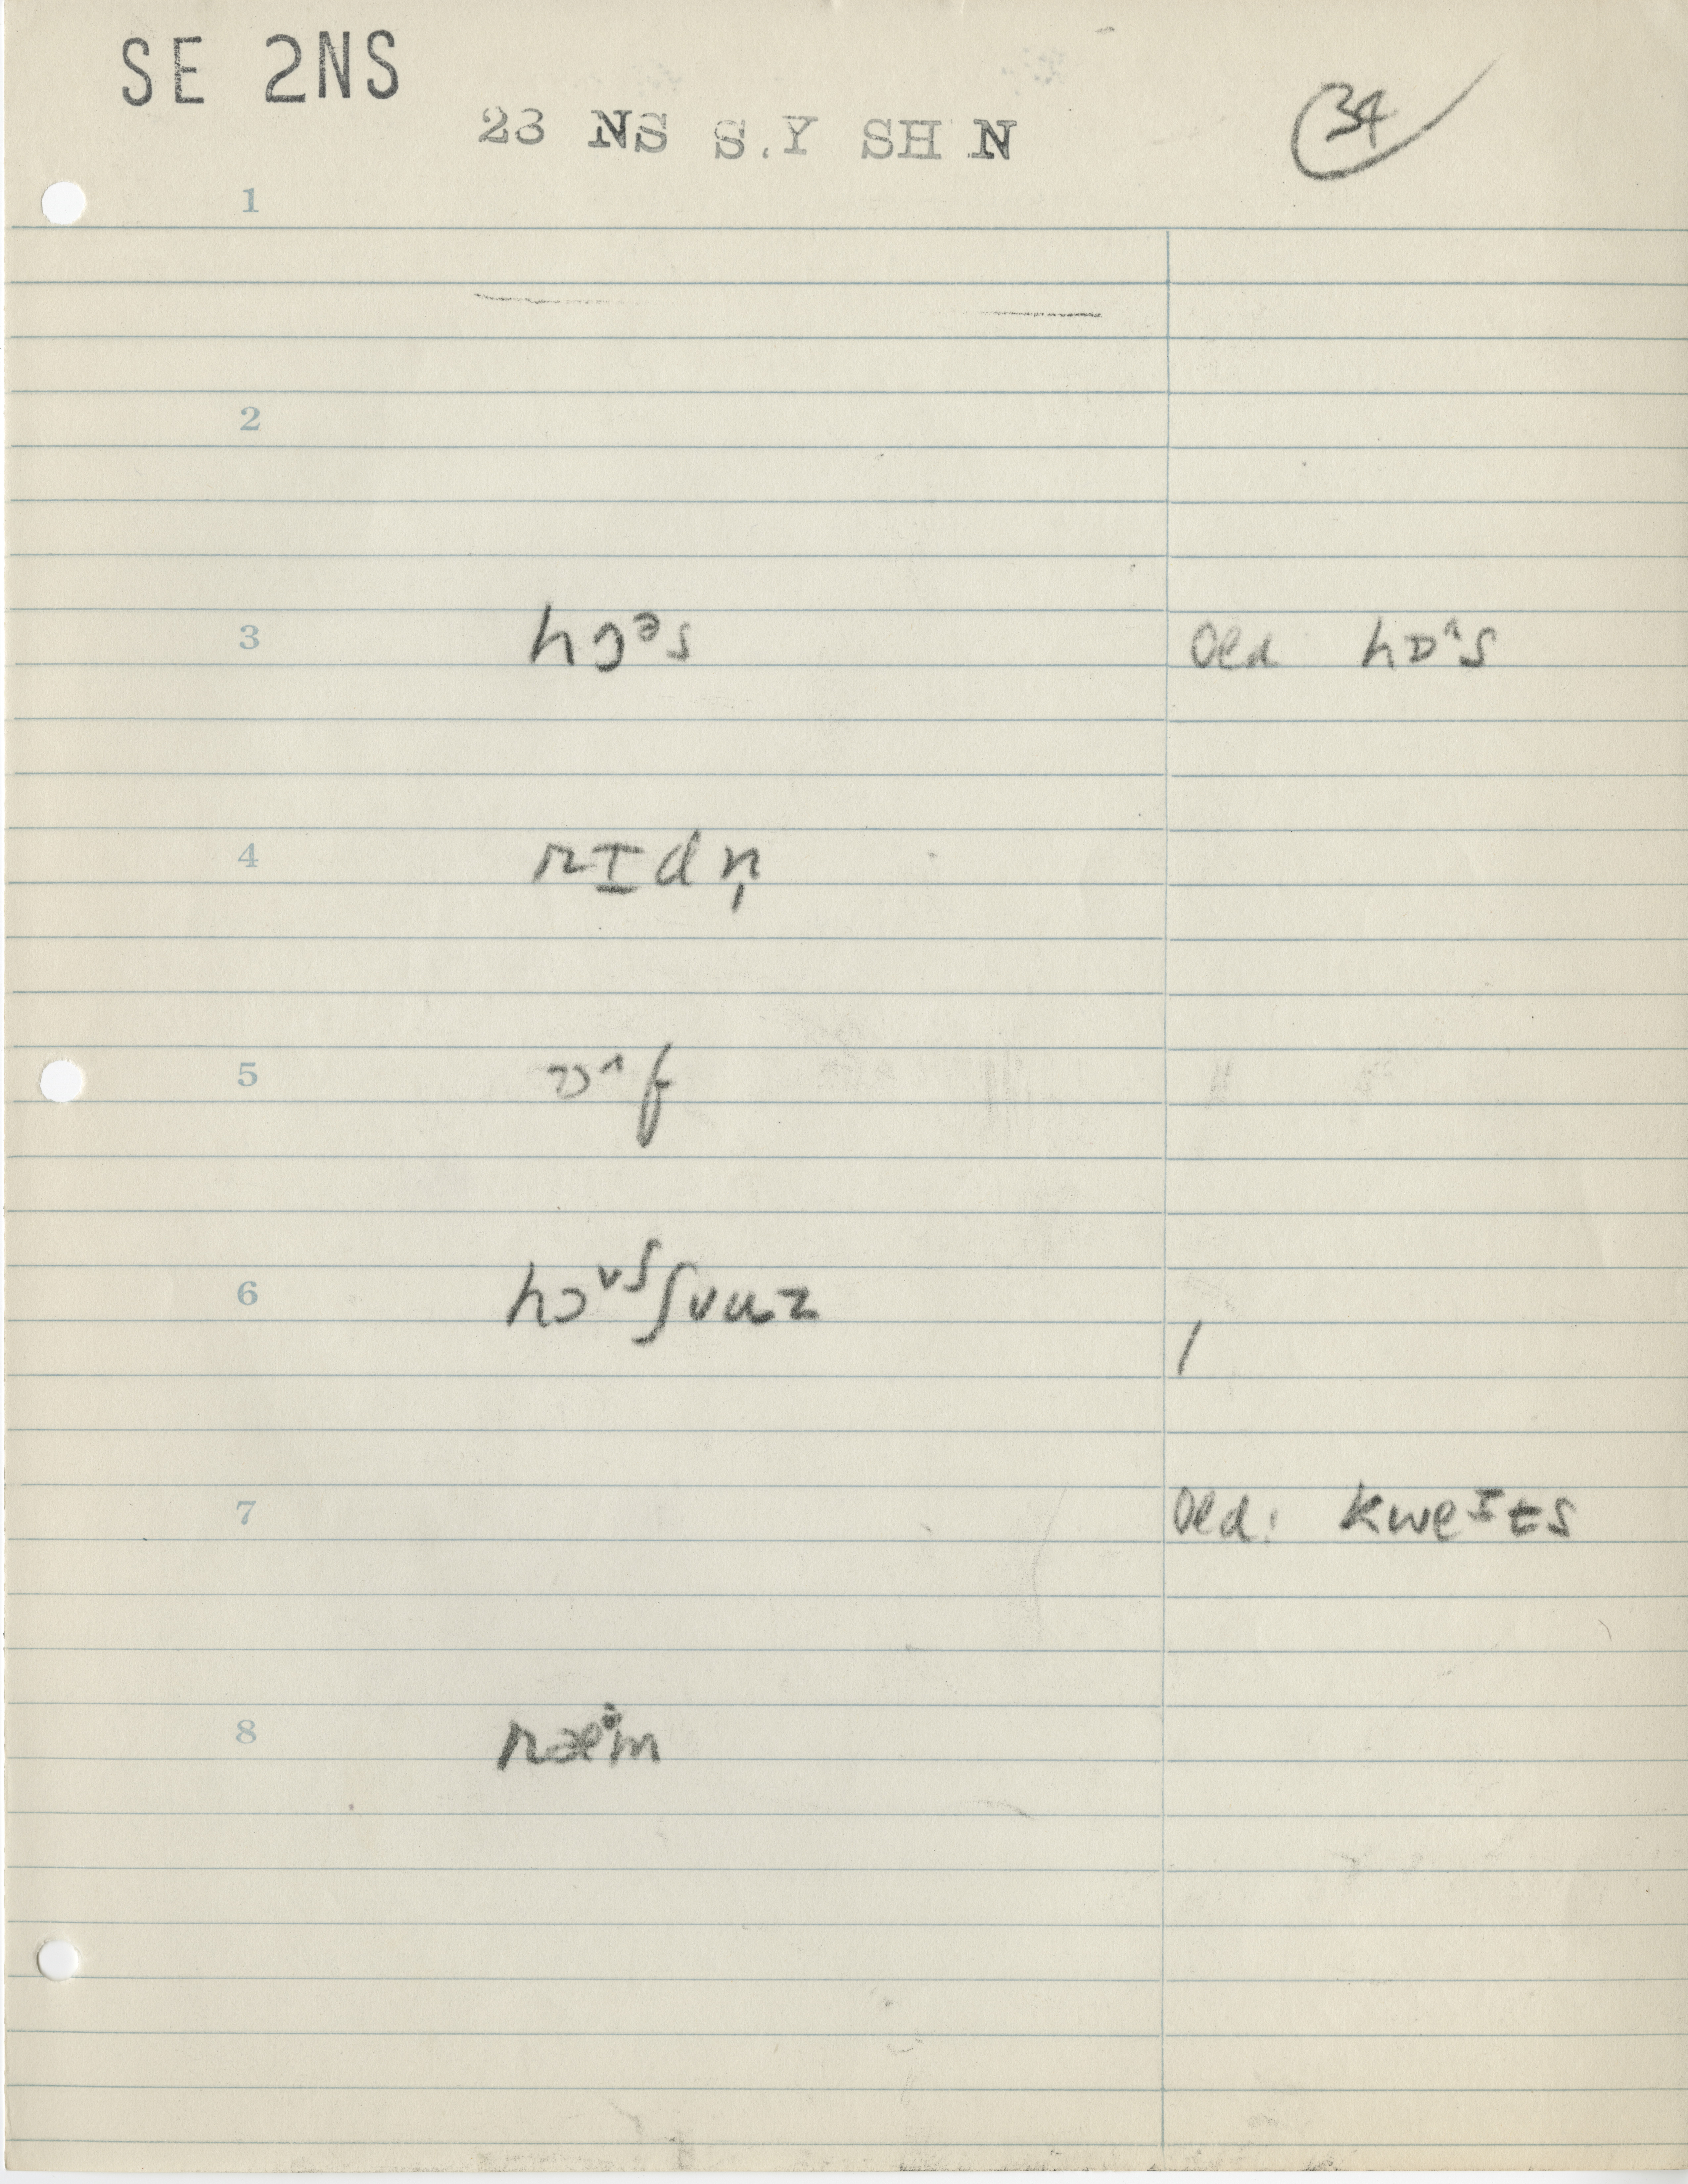 SE 2NS
23 NS S.Y SH N
34
1
2
3 hɔᵊs Old hɒ^s
4 rɪdn̩
5 ɔ^f
6 hɔᵛʃʃvuz
7 Old: kweᶦts
8